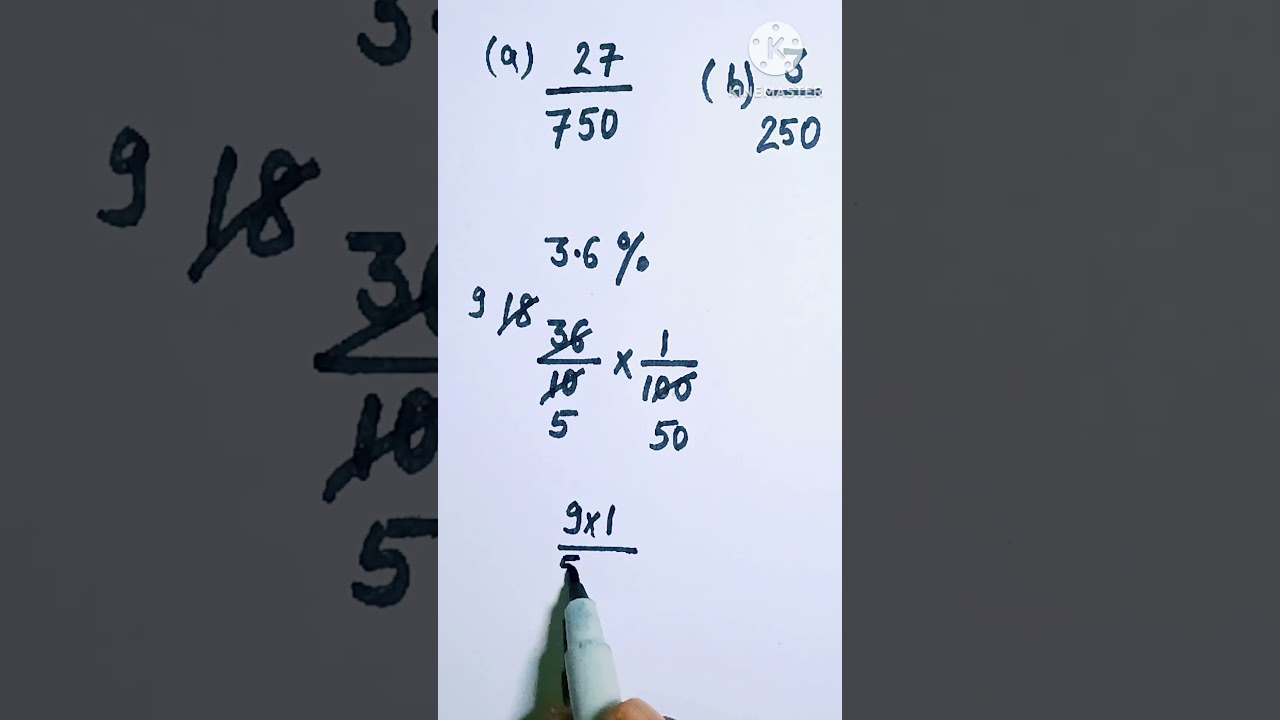 (a) 27/750 (b) 3/250
KINEMASTER
3.6 %
9 18
36/10 x 1/100
5 50
9x1
5